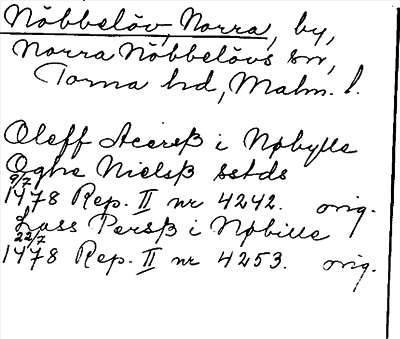 Nöbbelöv, Norra, by,
Norra Nöbbelövs sn,
Torna hd, Malm. l.
Oleff Acersß i Nøbylle
Oghe Nielsß sstds
9/7
1478 Rep. II nr 4242. orig.
Lass Persß i Nøbille
22/7
1478 Rep. II nr 4253. orig.